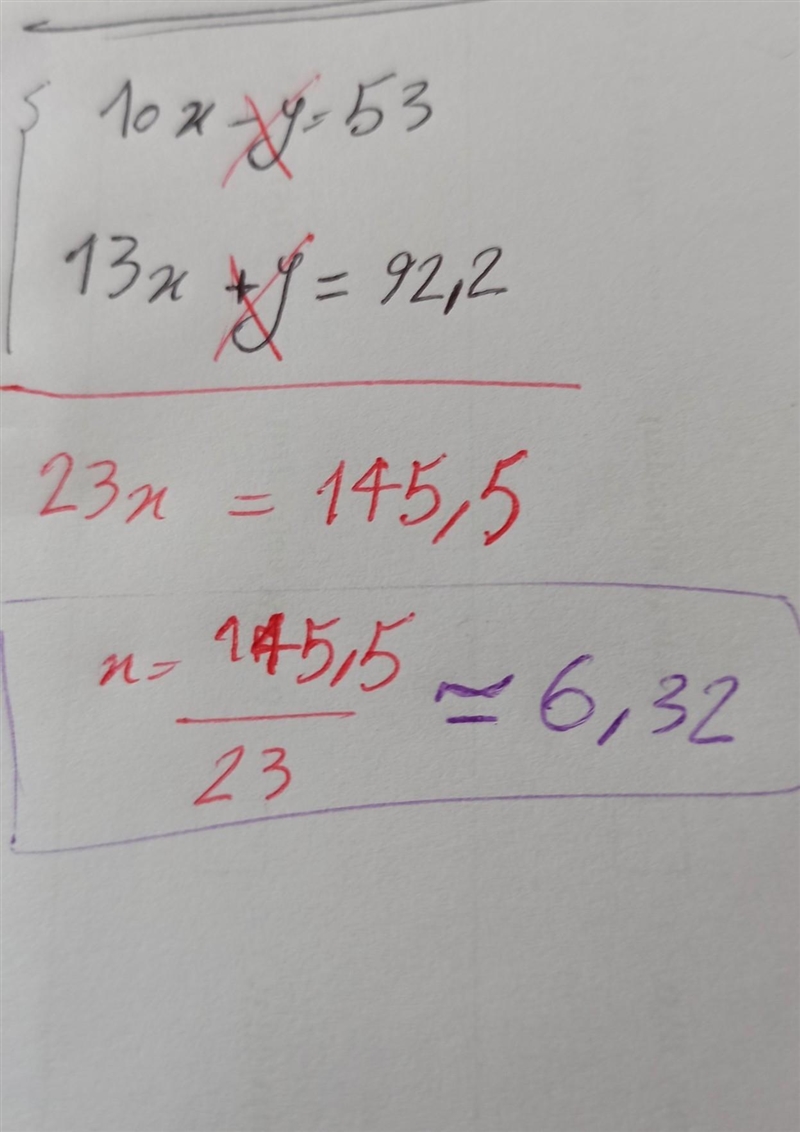 10x - y = 53
13x + y = 92,2
23x = 145,5
x = 145,5 / 23 ≃ 6,32